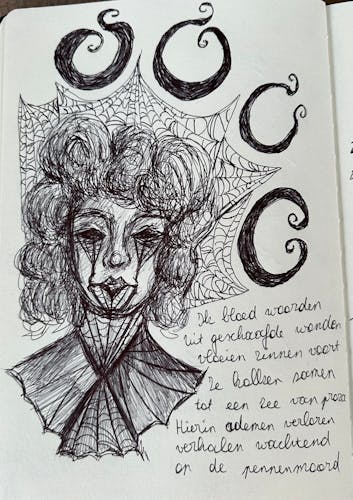 Ik bloed woorden
uit geschaafde wonden
vloeien zinnen voort
Ze kolken samen
tot een zee van proza
Hierin ademen verloren
verhalen wachtend
op de pennenmoord